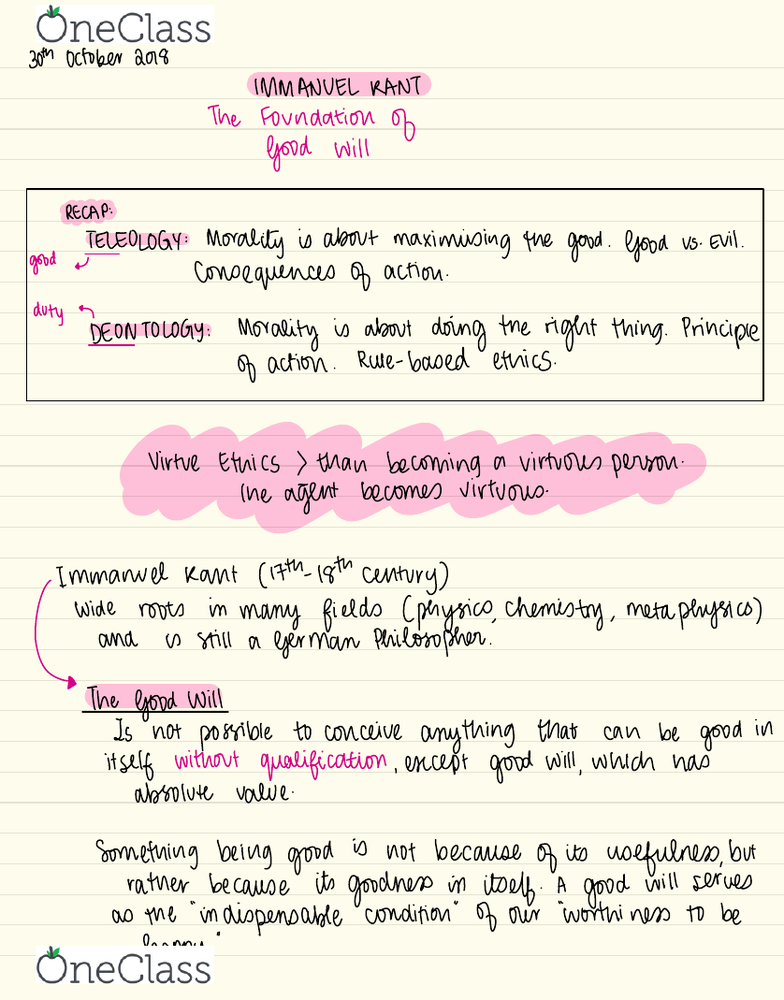 OneClass
30th October 2018
IMMANUEL KANT
The Foundation of
Good Will
RECAP:
TELEOLOGY: Morality is about maximising the good. Good vs. Evil.
good
Consequences of action.
duty
DEONTOLOGY: Morality is about doing the right thing. Principle
of action. Rule-based ethics.
Virtue Ethics > than becoming a virtuous person.
The agent becomes virtuous.
Immanuel Kant (17th-18th century)
Wide roots in many fields (physics, chemistry, metaphysics)
and is still a German Philosopher.
The Good Will
Is not possible to conceive anything that can be good in
itself without qualification, except good will, which has
absolute value.
Something being good is not because of its usefulness, but
rather because its goodness in itself. A good will serves
as the "indispensable condition" of our "worthiness to be
OneClass